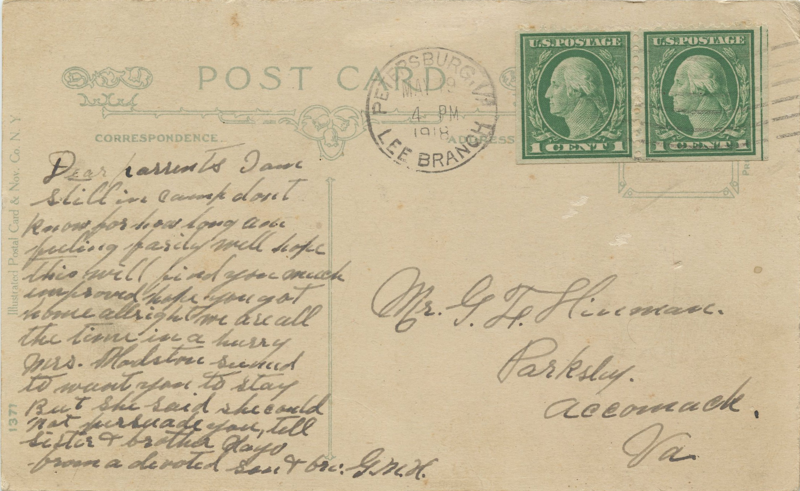 POST CARD
PETERSBURG, VA
MAY
4 PM
1918
LEE BRANCH
U.S. POSTAGE
1 CENT 1
U.S. POSTAGE
1 CENT 1
CORRESPONDENCE
ADDRESS
Illustrated Postal Card & Nov. Co. N. Y.
1371
Dear parrents I am
still in camp dont
know for how long am
feeling farily well hope
this will find you much
improved hope you got
home allright we are all
the time in a hurry
Mrs. seemed
to want you to stay
But she said she could
not persuade you, tell
sister & brother
from a devoted son & bro: G.N.H.
Mr. G. F. Hinman.
Parksley.
Accomack.
Va.